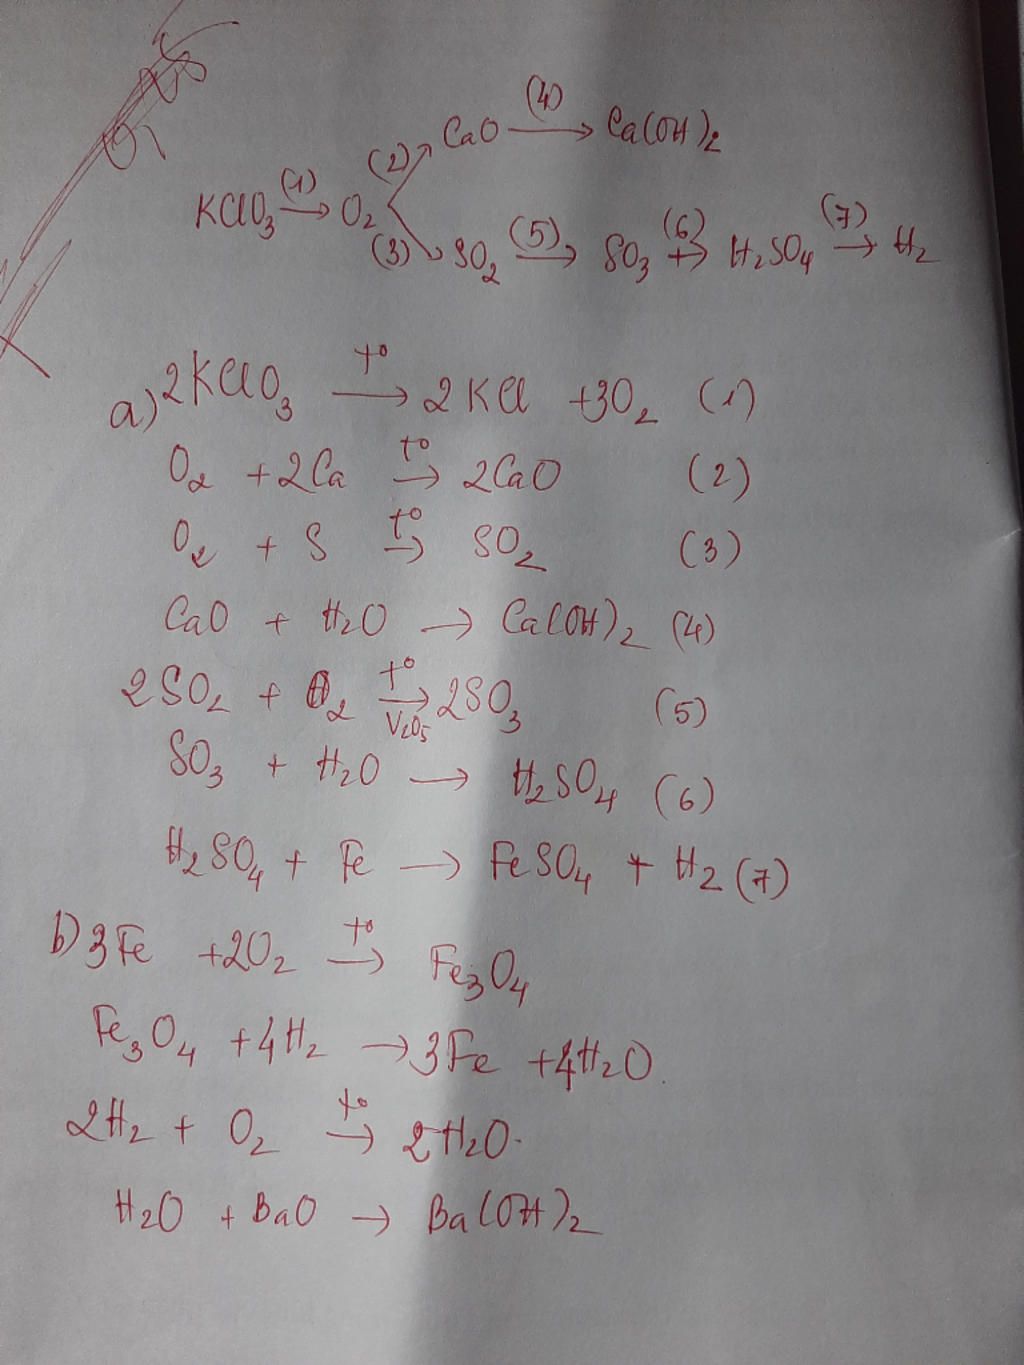 CaO (4)→ Ca(OH)2
KClO3 (1)→ O2 (2) (3)
SO2 (5)→ SO3 (6)→ H2SO4 (7)→ H2
a) 2KClO3 t°→ 2KCl +3O2 (1)
O2 +2Ca t°→ 2CaO (2)
O2 + S t°→ SO2 (3)
CaO + H2O → Ca(OH)2 (4)
2SO2 + O2 t°→ V2O5 2SO3 (5)
SO3 + H2O → H2SO4 (6)
H2SO4 + Fe → FeSO4 + H2 (7)
b) 3Fe +2O2 t°→ Fe3O4
Fe3O4 +4H2 → 3Fe +4H2O.
2H2 + O2 t°→ 2H2O.
H2O + BaO → Ba(OH)2